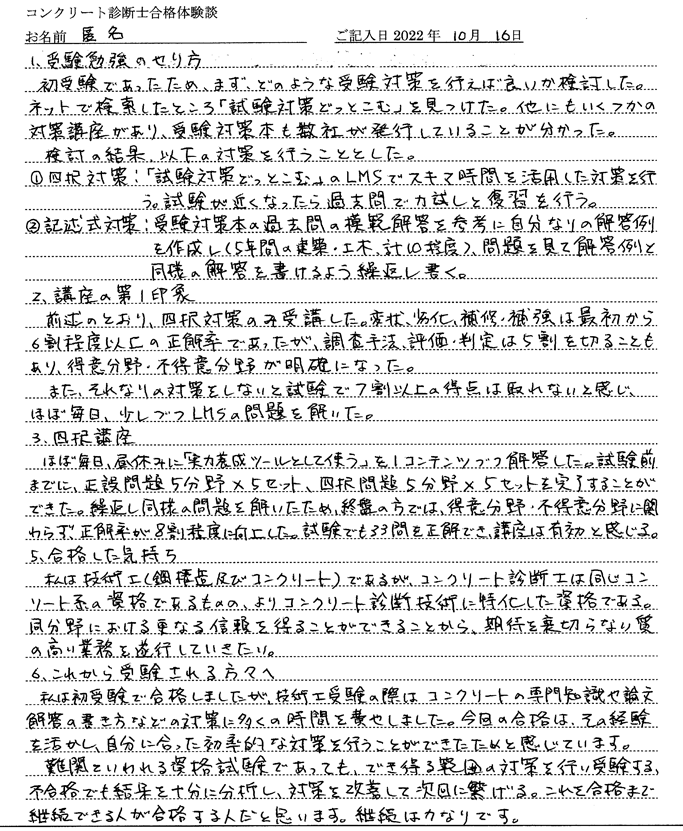 コンクリート診断士合格体験談
お名前 匿名 ご記入日 2022年 10月 16日
1.受験勉強のやり方
初受験であったため、まず、どのような受験対策を行えば良いか検討した。
ネットで検索したところ「試験対策どっとこむ」を見つけた。他にもいくつかの
対策講座があり、受験対策本も数社が発行していることが分かった。
検討の結果、以下の対策を行うこととした。
①四択対策:「試験対策どっとこむ」のLMSでスキマ時間を活用した対策を行
う。試験が近くなったら過去問で力試しと復習を行う。
②記述式対策:受験対策本の過去問の模範解答を参考に自分なりの解答例
を作成し(5年間の建築・土木、計10程度)、問題を見て解答例と
同様の解答を書けるよう繰返し書く。
2.講座の第1印象
前述のとおり、四択対策のみ受講した。変状、劣化、補修・補強は最初から
6割程度以上の正解率であったが、調査手法、評価・判定は5割を切ることも
あり、得意分野・不得意分野が明確になった。
また、それなりの対策をしないと試験で7割以上の得点は取れないと感じ、
ほぼ毎日、少しづつLMSの問題を解いた。
3.四択講座
ほぼ毎日、昼休みに「実力養成ツールとして使う」を1コンテンツづつ解答した。試験前
までに、正誤問題5分野×5セット、四択問題5分野×5セットを完了することが
できた。繰返し同様の問題を解いたため、終盤の方では、得意分野・不得意分野に関
わらず正解率が8割程度に向上した。試験でも33問を正解でき、講座は有効と感じる。
5.合格した気持ち
私は技術士(鋼構造及びコンクリート)であるが、コンクリート診断士は同じコン
クリート系の資格であるものの、よりコンクリート診断技術に特化した資格である。
同分野における更なる信頼を得ることができることから、期待を裏切らない質
の高い業務を遂行していきたい。
6.これから受験される方々へ
私は初受験で合格しましたが、技術士受験の際はコンクリートの専門知識や論文
解答の書き方などの対策に多くの時間を費やしました。今回の合格は、その経験
を活かし、自分に合った効率的な対策を行うことができたためと感じています。
難関といわれる資格試験であっても、でき得る範囲の対策を行い受験する、
不合格でも結果を十分に分析し、対策を改善して次回に繋げる。これを合格まで
継続できる人が合格する人だと思います。継続は力なりです。